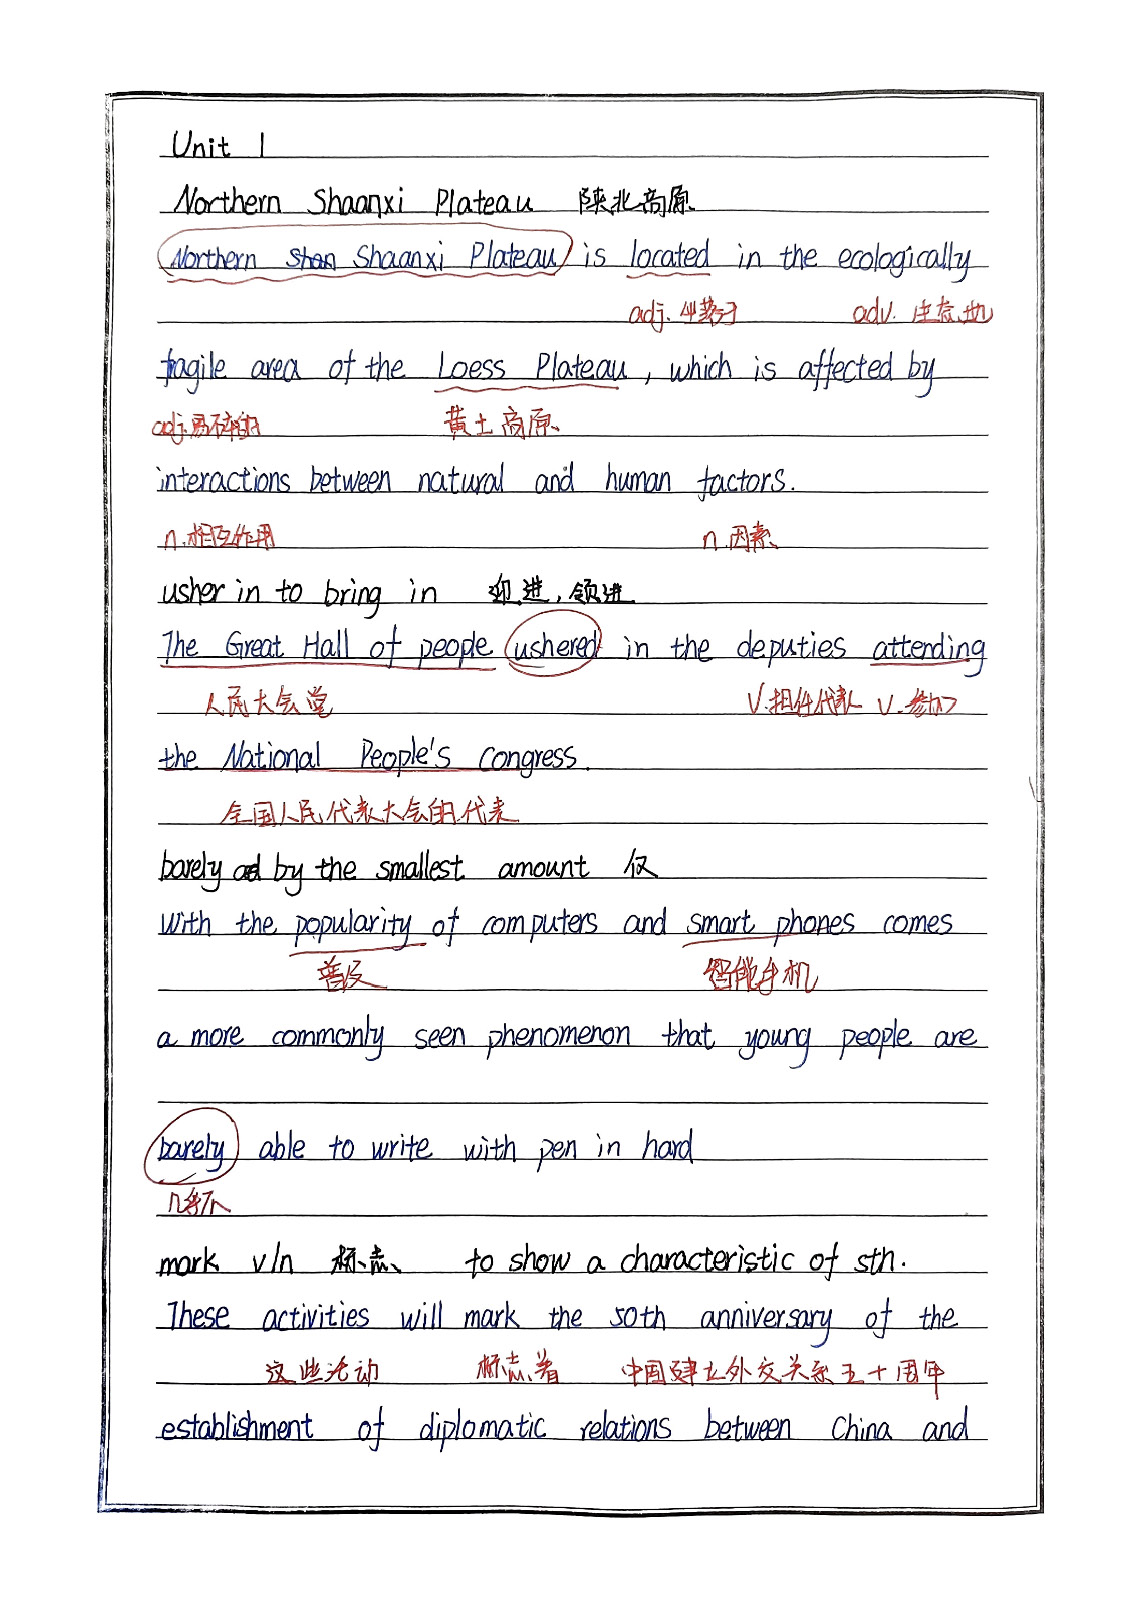 Unit 1
Northern Shaanxi Plateau 陕北高原
Northern Shaanxi Plateau is located in the ecologically
adj. 坐落于 adv. 生态地
fragile area of the Loess Plateau, which is affected by
adj.易碎的 黄土高原
interactions between natural and human factors.
n.相互作用 n.因素
usher in to bring in 迎进,领进
The Great Hall of people ushered in the deputies attending
人民大会堂 V.担任代表 V.参加
the National People's Congress.
全国人民代表大会的代表
barely by the smallest amount 仅
With the popularity of computers and smart phones comes
普及 智能手机
a more commonly seen phenomenon that young people are
barely able to write with pen in hard
几乎不
mark v/n 标志 to show a characteristic of sth.
These activities will mark the 50th anniversary of the
这些活动 标志着 中国建立外交关系五十周年
establishment of diplomatic relations between China and